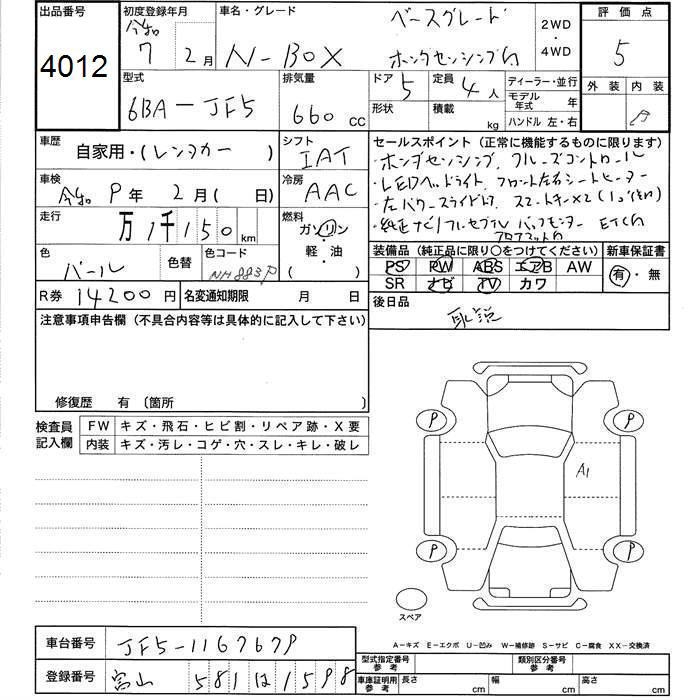 出品番号 初度登録年月 車名・グレード ベースグレード 2WD・4WD 評価点
4012 令和 7 2月 N-BOX ホンダセンシング付 5
型式 排気量 ドア 定員 ディーラー・並行 外装 内装
6BA-JF5 660 CC 5 4人 モデル年式 年 B
形状 積載 kg ハンドル 左・右
車歴 自家用・(レンタカー ) シフト IAT セールスポイント (正常に機能するものに限ります)
・ホンダセンシング クルーズコントロール
車検 令和 9年 2月 ( 日) 冷房 AAC ・LEDヘッドライト フロント左右シートヒーター
・左パワースライドドア スマートキー×2
走行 万 1千150 km 燃料 ガソリン・軽・油( ) ・純正ナビ フルセグTV バックモニター ETC付
フロアマット付
色 パール 色替 色コード NH883P 装備品 (純正品に限り○をつけてください) 新車保証書
PS PW ABS エアB AW 有・無
R券 14200円 名変通知期限 月 日 SR ナビ TV カワ
注意事項申告欄 (不具合内容等は具体的に記入して下さい) 後日品
取説
修復歴 有 〔箇所 〕
検査員記入欄 FW キズ・飛石・ヒビ割・リペア跡・X要
内装 キズ・汚レ・コゲ・穴・スレ・キレ・破レ
P P
A1
P P
スペア
A-キズ E-エクボ U-凹み W-補修跡 S-サビ C-腐食 XX-交換済
車台番号 JF5-1167679 型式指定番号 参考 類別区分番号 参考
登録番号 富山 581 は 1598 車庫証明用 参考 長さ cm 幅 cm 高さ cm